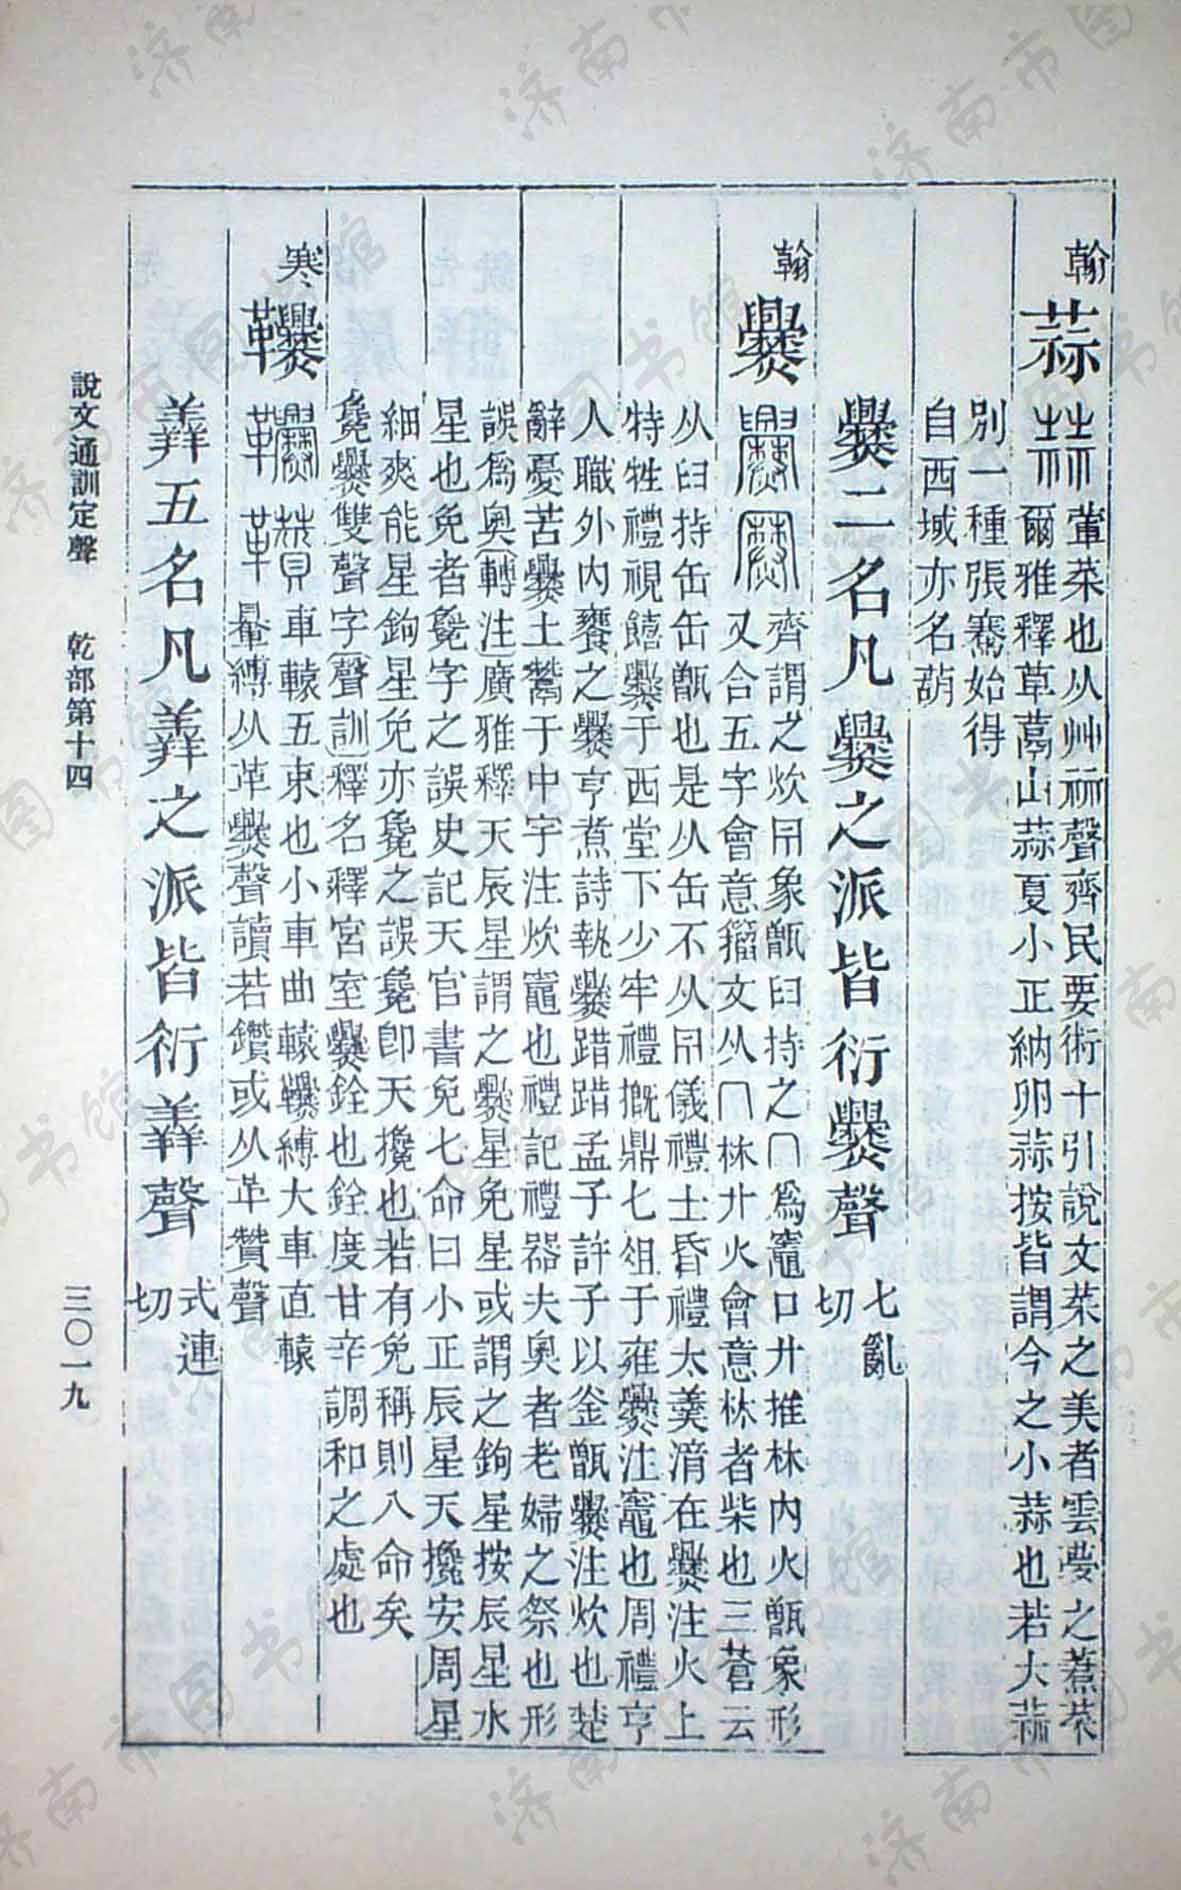 翰
蒜
葷菜也从艸祘聲齊民要術十引說文菜之美者雲夢之葷菜
爾雅釋草蒚山蒜夏小正納卵蒜按皆謂今之小蒜也若大蒜
別一種張騫始得
自西域亦名葫
爨二名凡爨之派皆衍爨聲
七亂
切
翰
爨
齊謂之炊㸑象甑𦥑持之冂爲竈口廾推林內火甑象形
又合五字會意籀文从冂林廾火會意林者柴也三蒼云
从𦥑持缶缶甑也是从缶不从同儀禮士昏禮大羹湆在爨注火上
特牲禮視饎爨于西堂下少牢禮摡鼎匕俎于雍爨注竈也周禮亨
人職外內饔之爨亨煮詩執爨踖踖孟子許子以釜甑爨注炊也楚
辭憂苦爨土鬵于中宇注炊竈也禮記禮器夫奥者老婦之祭也形
誤爲奥轉注廣雅釋天辰星謂之爨星免星或謂之鉤星按辰星水
星也免者毚字之誤史記天官書免七命曰小正辰星天攙安周星
細爽能星鉤星免亦毚之誤毚卽天攙也若有免稱則八命矣
毚爨雙聲字聲訓釋名釋宮室爨銓也銓度甘辛調和之處也
寒
車轅五束也小車曲轅縛大車直轅
縛从革爨聲讀若鑽或从革贊聲
羴五名凡羴之派皆衍羴聲
式連
切
說文通訓定聲
乾部第十四
三〇一九